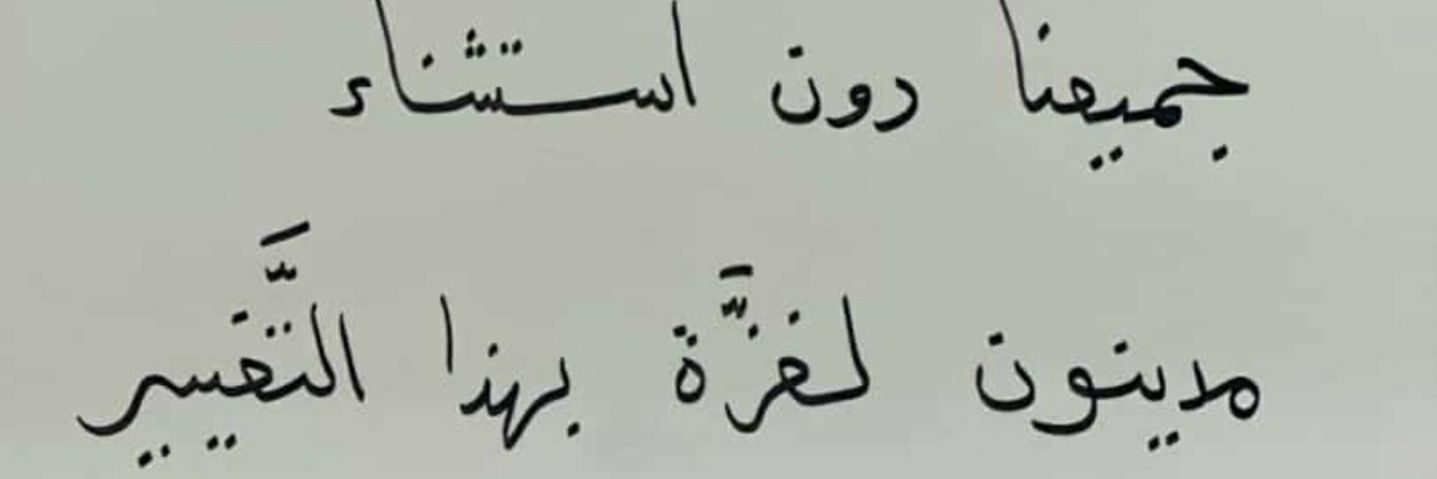 جميعنا دون استثناء
مدينون لغزَّة بهذا التَّغيير